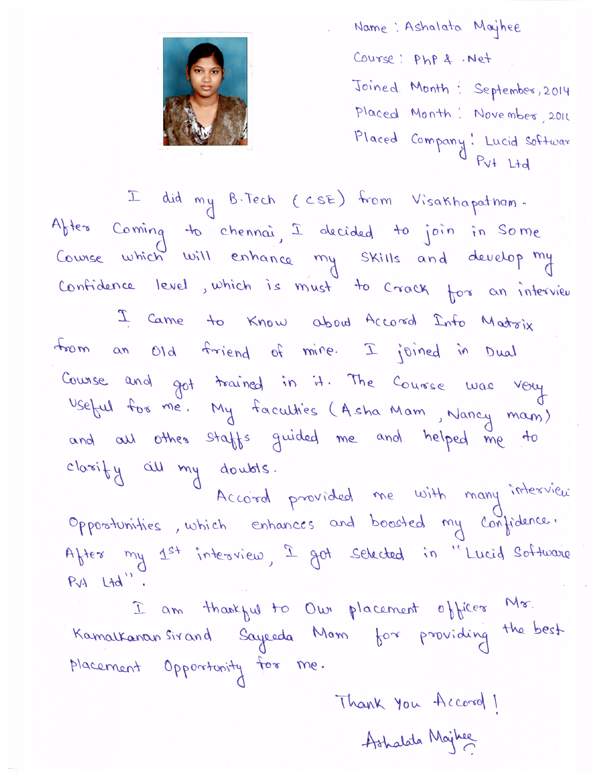 Name : Ashalata Majhee
Course : PhP & .Net
Joined Month : September, 2014
Placed Month : November, 201
Placed Company : Lucid Softwar
Pvt Ltd
I did my B.Tech (CSE) from Visakhapatnam.
After Coming to chennai, I decided to join in Some
Course which will enhance my Skills and develop my
Confidence level, which is must to Crack for an interview
I Came to Know about Accord Info Matrix
from an Old friend of mine. I joined in Dual
Course and got trained in it. The Course was very
Useful for me. My faculties (Asha Mam, Nancy mam)
and all other Staffs guided me and helped me to
clarify all my doubts.
Accord provided me with many interview
Opportunities, which enhances and boosted my Confidence.
After my 1st interview, I got Selected in "Lucid Software
Pvt Ltd".
I am thankful to Our placement officer Mr.
Kamalkanan Sir and Sayeeda Mam for providing the best
placement Opportunity for me.
Thank You Accord!
Ashalata Majhee